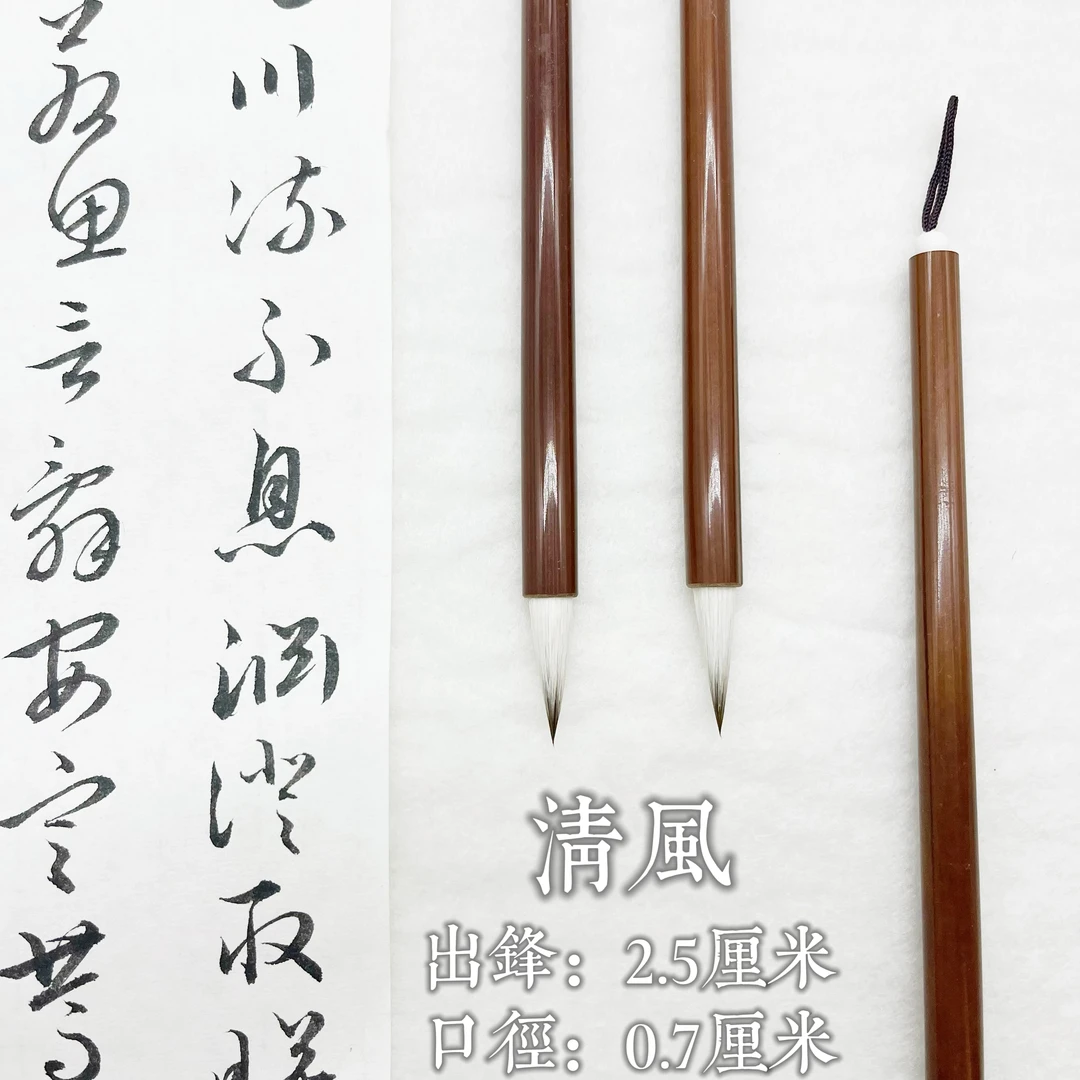 川流不息淵澄取映
若思言辭安定篤
清風
出鋒：2.5厘米
口徑：0.7厘米